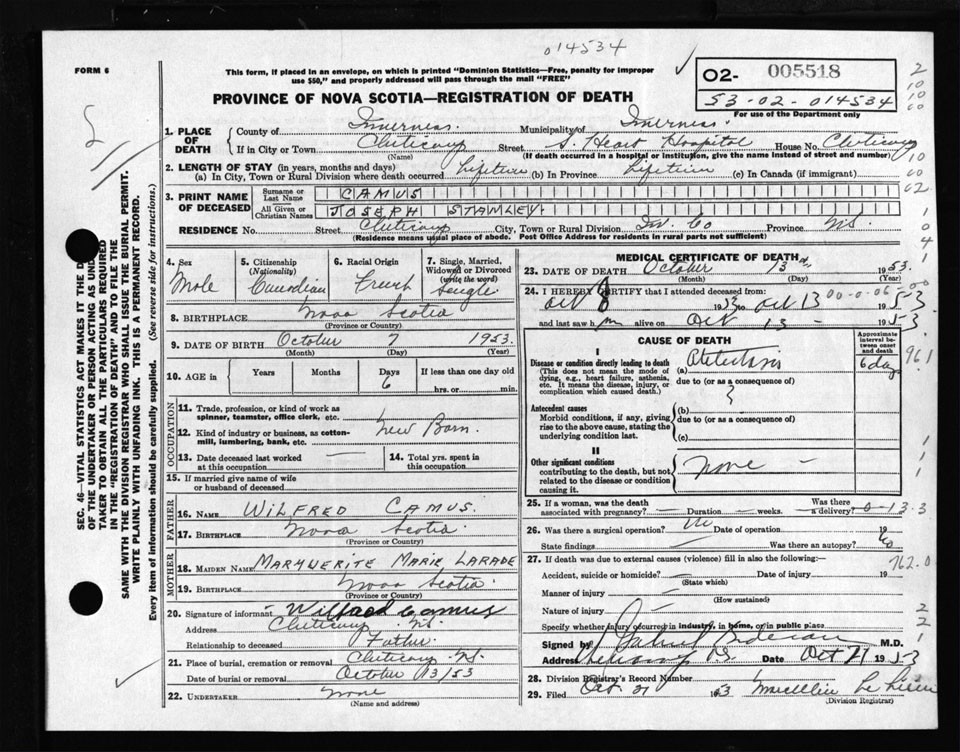 014534
FORM 6
This form, if placed in an envelope, on which is printed "Dominion Statistics—Free, penalty for improper
use $50," and properly addressed will pass through the mail "FREE"
O2- 005518
53-02-014534
For use of the Department only
PROVINCE OF NOVA SCOTIA—REGISTRATION OF DEATH
1. PLACE OF DEATH
County of Inverness. Municipality of Inverness.
If in City or Town Cheticamp Street S. Heart Hospital House No. Cheticamp
(Name) (If death occurred in a hospital or institution, give the name instead of street and number)
2. LENGTH OF STAY (in years, months and days)
(a) In City, Town or Rural Division where death occurred Lifetime (b) In Province Lifetime (c) In Canada (if immigrant)
3. PRINT NAME OF DECEASED
Surname or Last Name CAMUS
All Given or Christian Names JOSEPH STAMLEY
RESIDENCE No. Street Cheticamp City, Town or Rural Division Inv. Co Province NS
(Residence means usual place of abode. Post Office Address for residents in rural parts not sufficient)
4. Sex Male
5. Citizenship (Nationality) Canadian
6. Racial Origin French
7. Single, Married, Widowed or Divorced (write the word) Single
8. BIRTHPLACE Nova Scotia
(Province or Country)
9. DATE OF BIRTH October 7 1953
(Month) (Day) (Year)
10. AGE in Years Months Days 6 If less than one day old hrs. or min.
OCCUPATION
11. Trade, profession, or kind of work as spinner, teamster, office clerk, etc.
12. Kind of industry or business, as cotton-mill, lumbering, bank, etc. New Born.
13. Date deceased last worked at this occupation
14. Total yrs. spent in this occupation
15. If married give name of wife or husband of deceased
FATHER
16. NAME WILFRED CAMUS.
17. BIRTHPLACE Nova Scotia
(Province or Country)
MOTHER
18. MAIDEN NAME MARYUERITE MARIE LARADE
19. BIRTHPLACE Nova Scotia
(Province or Country)
20. Signature of informant Wilfred Camus
Address Cheticamp NS.
Relationship to deceased Father
21. Place of burial, cremation or removal Cheticamp NS.
Date of burial or removal October 13/53
22. UNDERTAKER None
(Name and address)
MEDICAL CERTIFICATE OF DEATH
23. DATE OF DEATH October 13 1953.
24. I HEREBY CERTIFY that I attended deceased from:
Oct 8 1953 to Oct 13 1953
00-0-06-00
and last saw him alive on Oct 13 - 1953
CAUSE OF DEATH
Approximate interval between onset and death
I
Disease or condition directly leading to death (a) Atelectasis 6 days
(This does not mean the mode of dying, e.g., heart failure, asthenia, etc. It means the disease, injury, or complication which caused death.)
due to (or as a consequence of)
Antecedent causes (b)
Morbid conditions, if any, giving rise to the above cause, stating the underlying condition last.
due to (or as a consequence of)
(c)
II
Other significant conditions contributing to the death, but not related to the disease or condition causing it. None -
25. If a woman, was the death associated with pregnancy? Duration weeks. Was there a delivery?
0-13.3
26. Was there a surgical operation? No Date of operation 19
State findings Was there an autopsy? No
27. If death was due to external causes (violence) fill in also the following:
762.0
Accident, suicide or homicide? Date of injury 19
(State which)
Manner of injury
(How sustained)
Nature of injury
Specify whether injury occurred in industry, in home, or in public place
Signed by M.D.
Address Date Oct 21 1953
28. Division Registrar's Record Number
29. Filed Oct 21 1953
(Division Registrar)
SEC. 46—VITAL STATISTICS ACT MAKES IT THE
OF THE UNDERTAKER OR PERSON ACTING AS
TAKER TO OBTAIN ALL THE PARTICULARS REQUIRED
IN THE "REGISTRATION OF DEATH" AND TO FILE THE
SAME WITH THE DIVISION REGISTRAR WHO SHALL ISSUE THE BURIAL PERMIT.
WRITE PLAINLY WITH UNFADING INK. THIS IS A PERMANENT RECORD.
Every item of information should be carefully supplied. (See reverse side for instructions.)